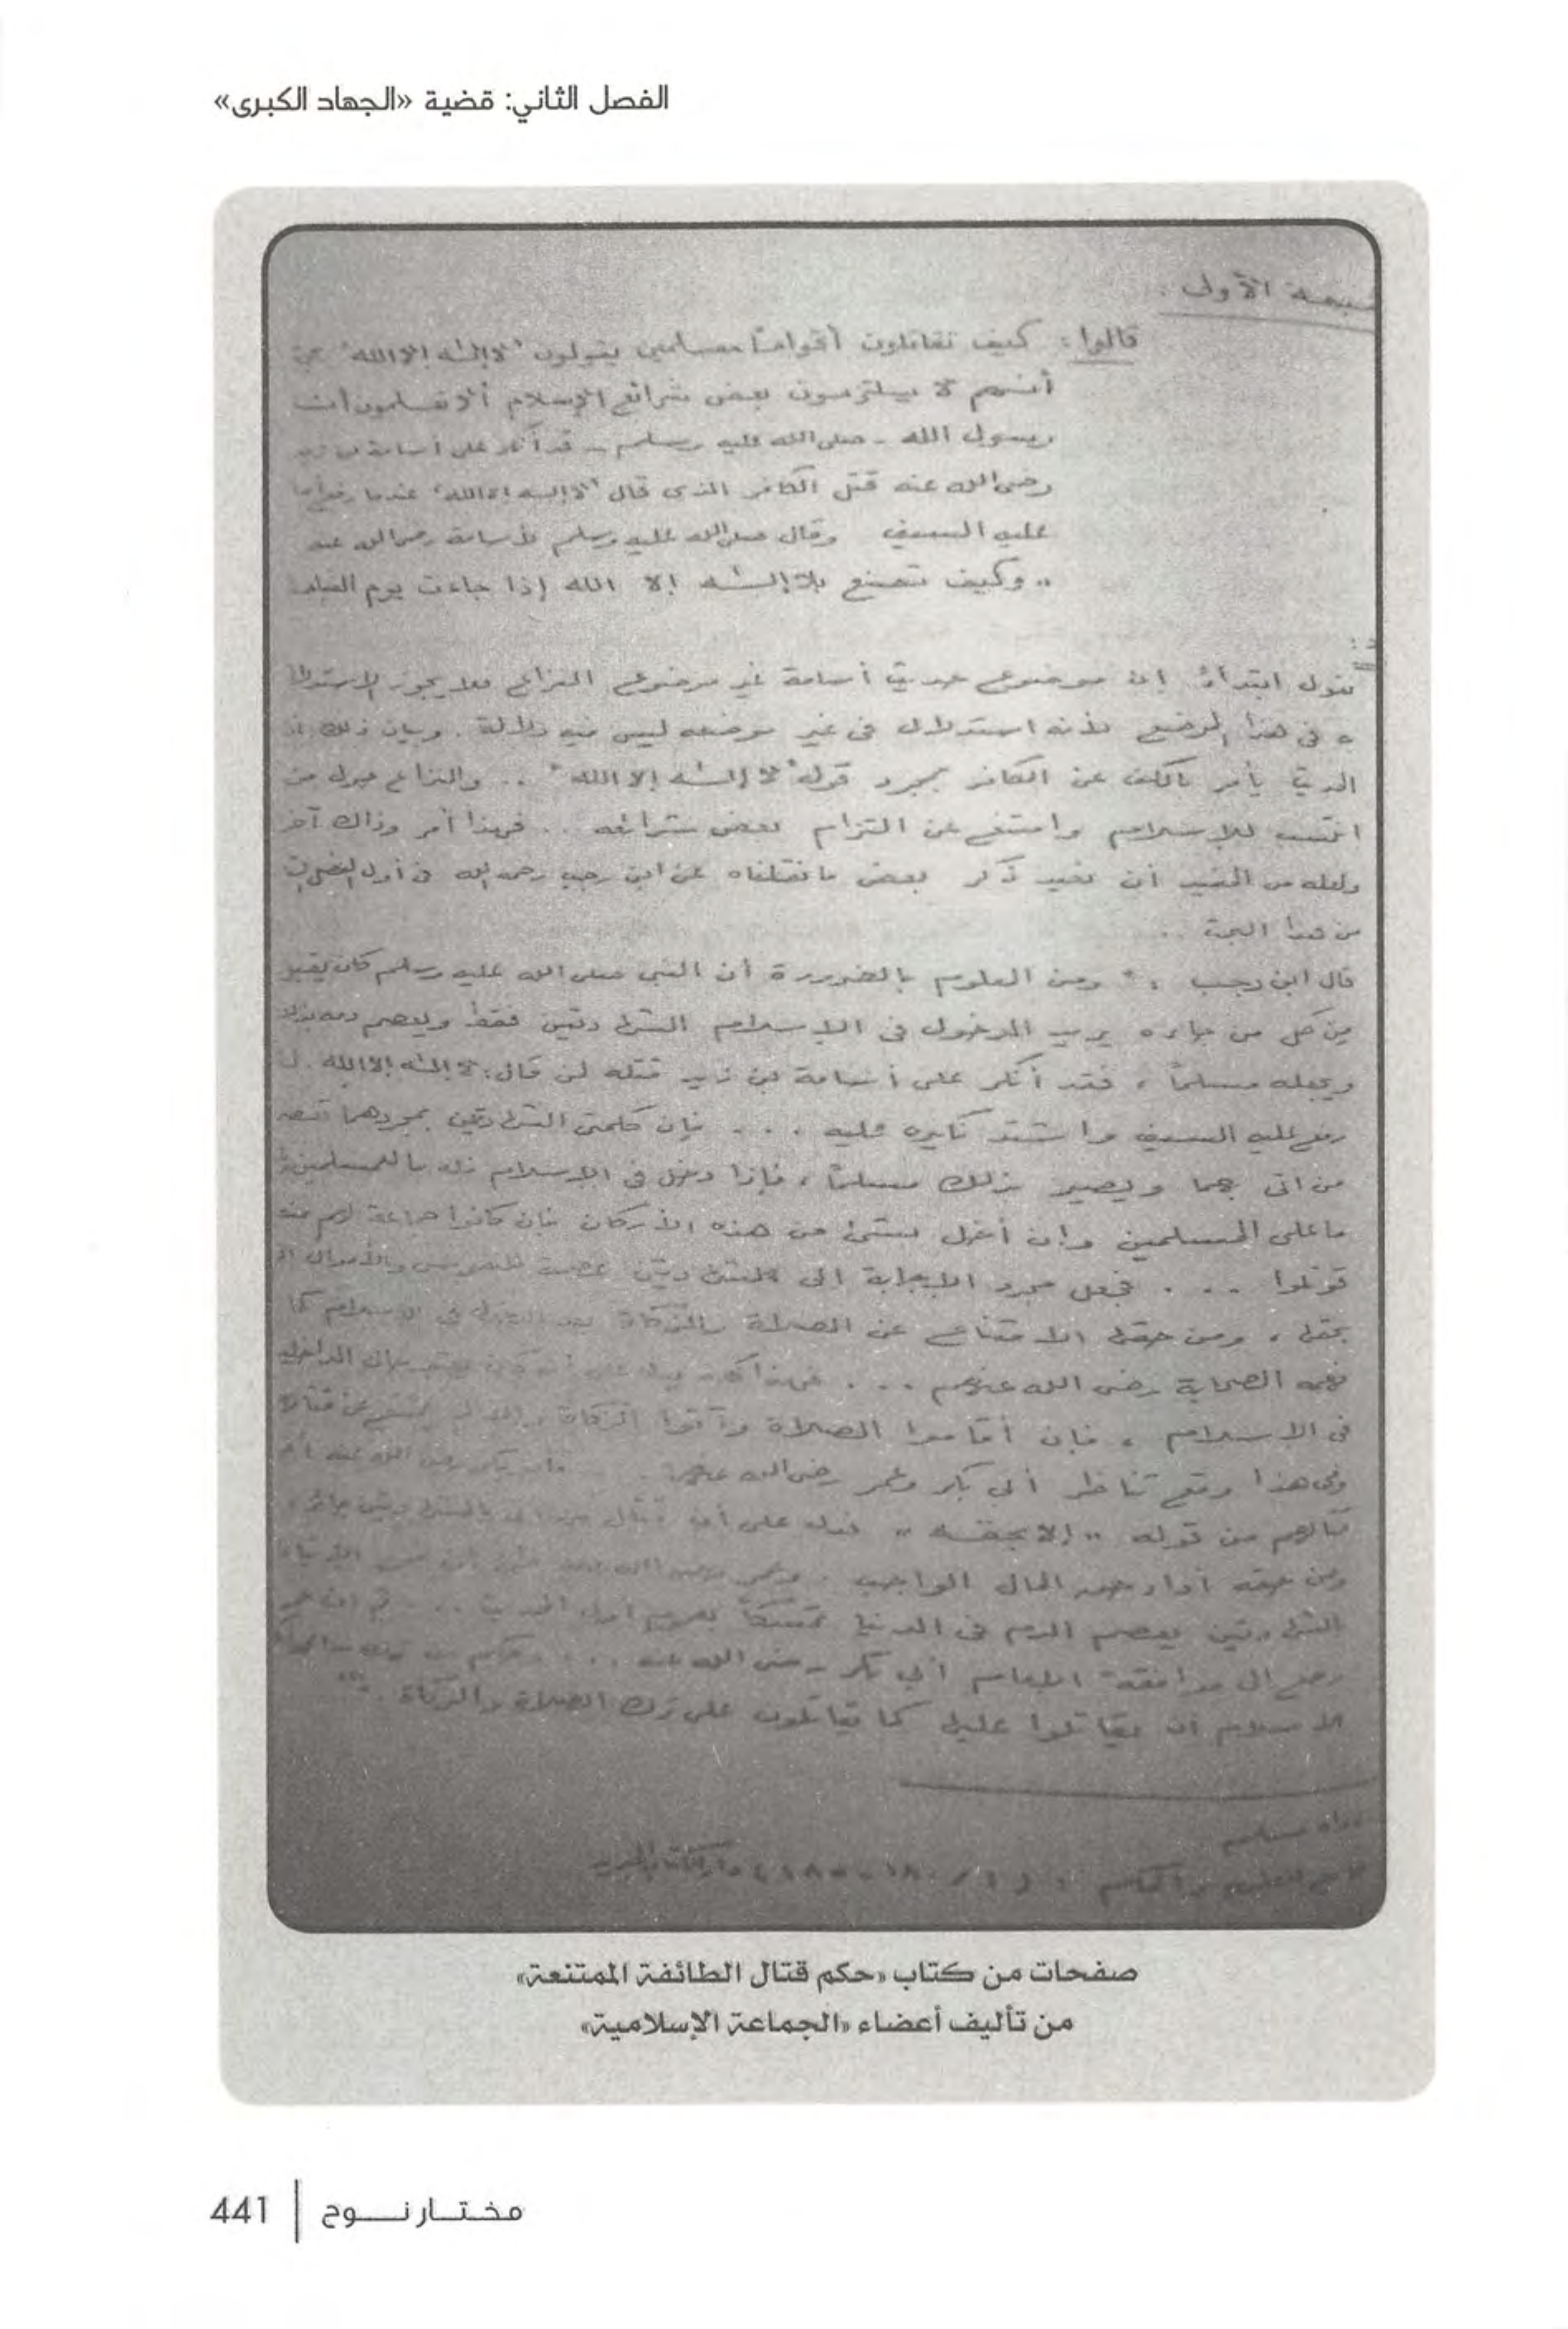 الفصل الثاني: قضية «الجهاد الكبرى»
الأولى :
قالوا : كيف تقاتلون أقواماً مسلمين يقولون "لا إله إلا الله"
أنهم لا يلتزمون بعض شرائع الإسلام ألا تعلمون أن
رسول الله - صلى الله عليه وسلم - قد أنكر على أسامة بن زيد
رضى الله عنه قتل الكافر الذى قال "لا إله إلا الله" عندما رفع
عليه السيف وقال صلى الله عليه وسلم لأسامة رضى الله عنه
.. وكيف تصنع بلا إله إلا الله إذا جاءت يوم القيامة
نقول ابتداءً إن موضوع حديث أسامة غير موضوع النزاع فلا يجوز الاستدلال
فى هذا الموضع لأنه استدلال فى غير موضعه ليس فيه دلالة . وبيان ذلك
يأمر بالكف عن الكافر بمجرد قوله "لا إله إلا الله" .. والنزاع حول من
انتسب للإسلام وامتنع عن التزام بعض شرائعه .. فهذا أمر وذاك آخر
ولعله من المفيد أن نعيد ذكر بعض ما نقلناه عن ابن رجب رحمه الله فى أول
من هذا البحث ..
قال ابن رجب : " ومن المعلوم بالضرورة أن النبى صلى الله عليه وسلم كان يقبل
من كل من جاءه يريد الدخول فى الإسلام الشهادتين فقط ويعصم دمه بذلك
ويجعله مسلماً ، فقد أنكر على أسامة بن زيد قتله لمن قال : لا إله إلا الله . لما
رفع عليه السيف واشتد نكيره عليه ... فإن كلمتى الشهادتين بمجردهما تعصم
من أتى بهما ويصير بذلك مسلماً ، فإذا دخل فى الإسلام
ما على المسلمين وإن أخل بشئ من هذه الأركان فإن كانوا جماعة لهم منعة
قوتلوا ... فجعل مجرد الإجابة إلى الشهادتين عصمة للنفوس والأموال إلا
بحقها ، ومن حقها الامتناع عن الصلاة والزكاة بعد الدخول فى الإسلام كما
فهمه الصحابة رضى الله عنهم ...
فى الإسلام ، فإن أقاموا الصلاة وآتوا الزكاة
وفى هذا وقع تناظر أبى بكر وعمر رضى الله عنهما
قتالهم من قوله " إلا بحقه " فدل على أن قتال
ومن حقه أداء حق المال الواجب .
الشهادتين يعصم الدم فى الدنيا تمسكاً بعموم أول الحديث ...
رجع إلى موافقة أبى بكر رضى الله عنه ...
الإسلام أن يقاتلوا عليها كما يقاتلون على ترك الصلاة والزكاة . "
رواه مسلم
جامع العلوم والحكم
صفحات من كتاب «حكم قتال الطائفة الممتنعة»
من تأليف أعضاء «الجماعة الإسلامية»
مختار نوح | 441